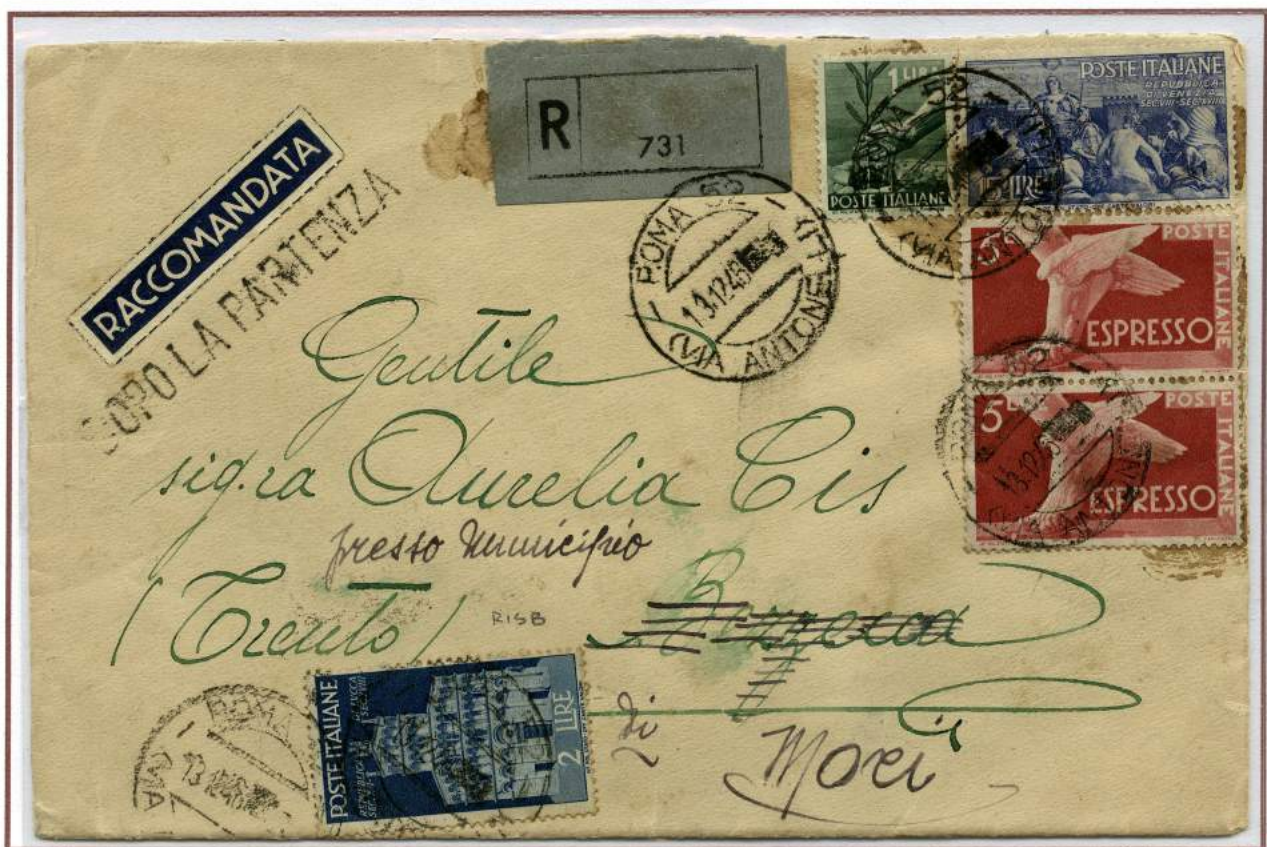 RACCOMANDATA
DOPO LA PARTENZA
R
731
1 LIRA
POSTE ITALIANE
POSTE ITALIANE
REPUBBLICA
DI VENEZIA
SEC.VIII-SEC.XVIII
15 LIRE
ROMA 52
13.12.46
(VIA ANTONELLI)
POSTE ITALIANE
ESPRESSO
5 LIRE
POSTE ITALIANE
ESPRESSO
13.12.46
Gentile
sig.ra Aurelia Cis
presso Municipio
(Trento) Bezzecca
RISB
di
Mori
POSTE ITALIANE
REPUBBLICA
2 LIRE
ROMA
13.12.46
(VIA